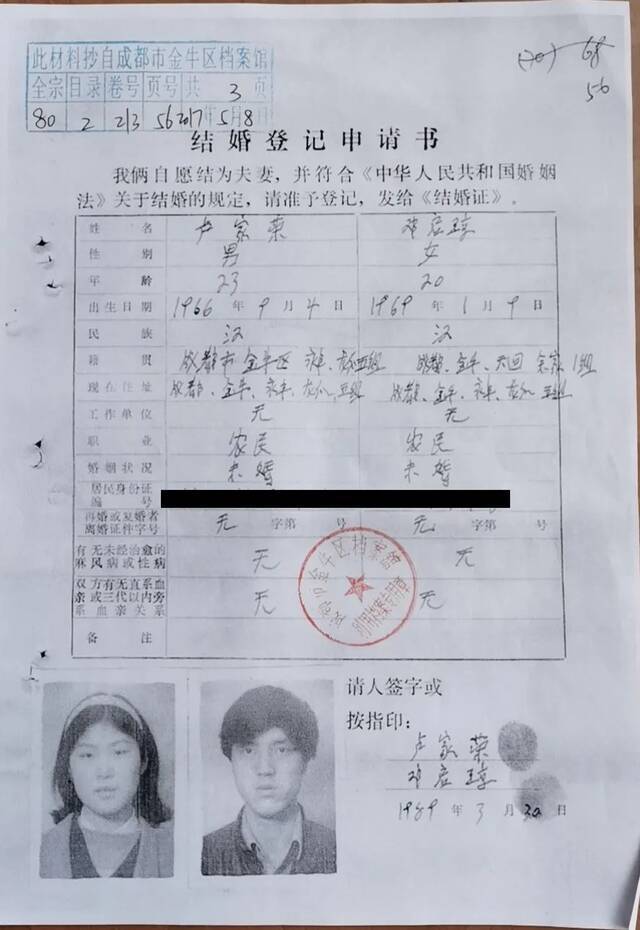 此材料抄自成都市金牛区档案馆
全宗 目录 卷号 页号 共 3 页
80 2 213 56 2017年5月8日
(70) 68
56
结婚登记申请书
我俩自愿结为夫妻，并符合《中华人民共和国婚姻
法》关于结婚的规定，请准予登记，发给《结婚证》。
姓名 卢家荣 邓宏琼
性别 男 女
年龄 23 20
出生日期 1966年9月4日 1969年1月9日
民族 汉 汉
籍贯 成都市金牛区 成都、金牛、天回 1组
现在住址 成都、金牛、 成都、金牛、
工作单位 无 无
职业 农民 农民
婚姻状况 未婚 未婚
居民身份证
编号
再婚或复婚者
离婚证件字号 无 字第 号 无 字第 号
有无未经治愈的
麻风病或性病 无 无
双方有无直系血
亲或三代以内旁
系血亲关系 无 无
备注
金牛区档案馆
请人签字或
按指印：
卢家荣
邓宏琼
1989年3月30日